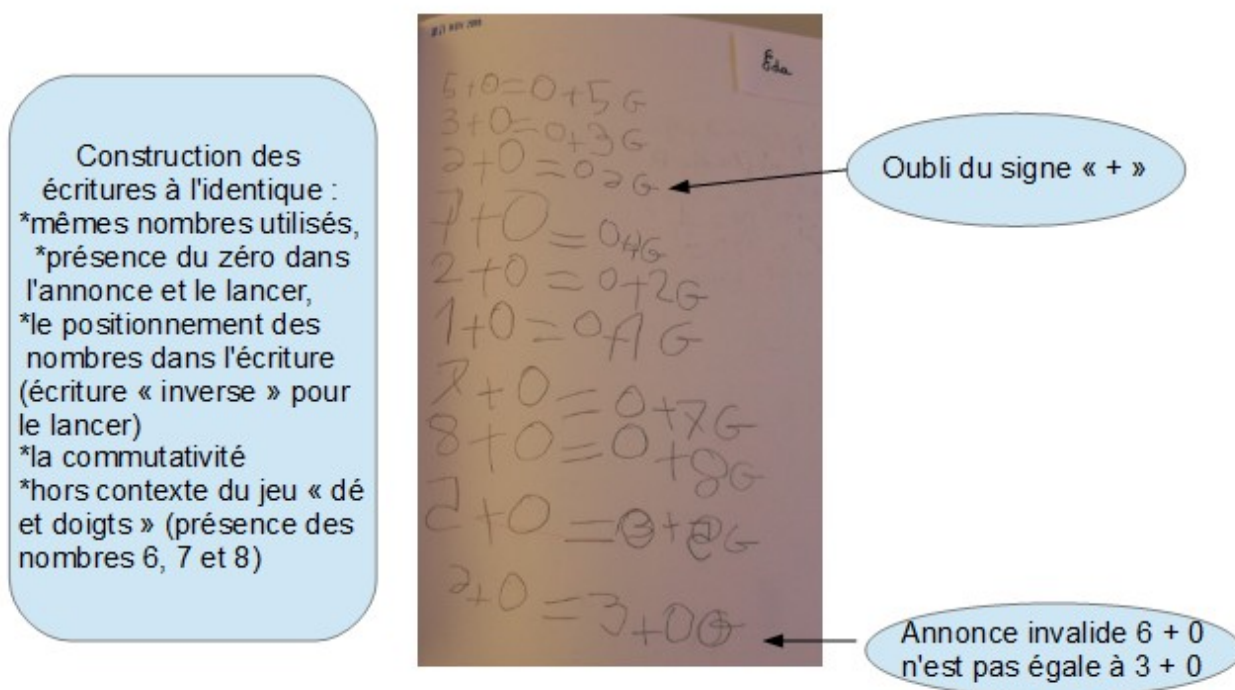 Construction des
écritures à l'identique :
*mêmes nombres utilisés,
*présence du zéro dans
l'annonce et le lancer,
*le positionnement des
nombres dans l'écriture
(écriture « inverse » pour
le lancer)
*la commutativité
*hors contexte du jeu « dé
et doigts » (présence des
nombres 6, 7 et 8)
NOV
Eda
5+0=0+5G
3+0=0+3G
2+0=02G
+0=04G
2+0=0+2G
1+0=0+1G
7+0=0+7G
8+0=0+8G
2+0=
2+0=3+0G
Oubli du signe « + »
Annonce invalide 6 + 0
n'est pas égale à 3 + 0